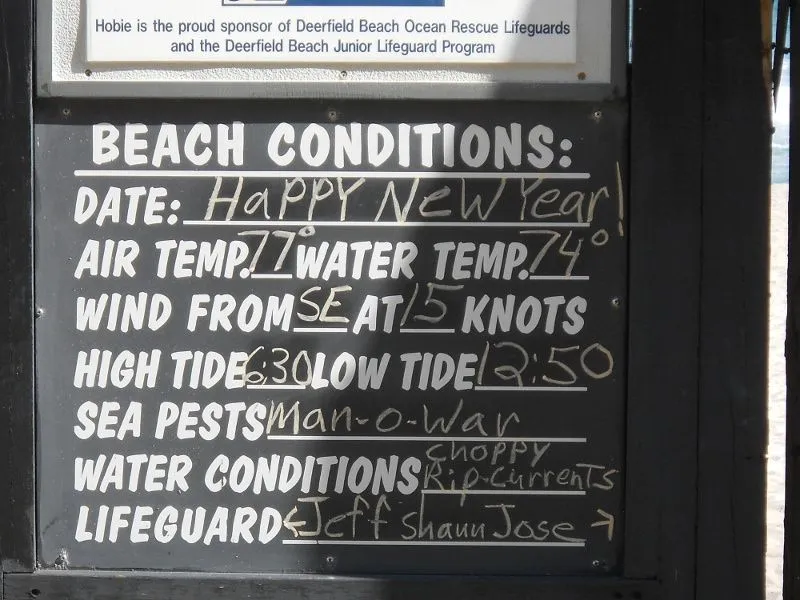 Hobie is the proud sponsor of Deerfield Beach Ocean Rescue Lifeguards
and the Deerfield Beach Junior Lifeguard Program
BEACH CONDITIONS:
DATE: HAPPY NEW Year!
AIR TEMP. 77° WATER TEMP. 74°
WIND FROM SE AT 15 KNOTS
HIGH TIDE 6:30 LOW TIDE 12:50
SEA PESTS Man-o-War
CHOPPY
WATER CONDITIONS Rip-Currents
LIFEGUARD ← Jeff Shaun Jose →